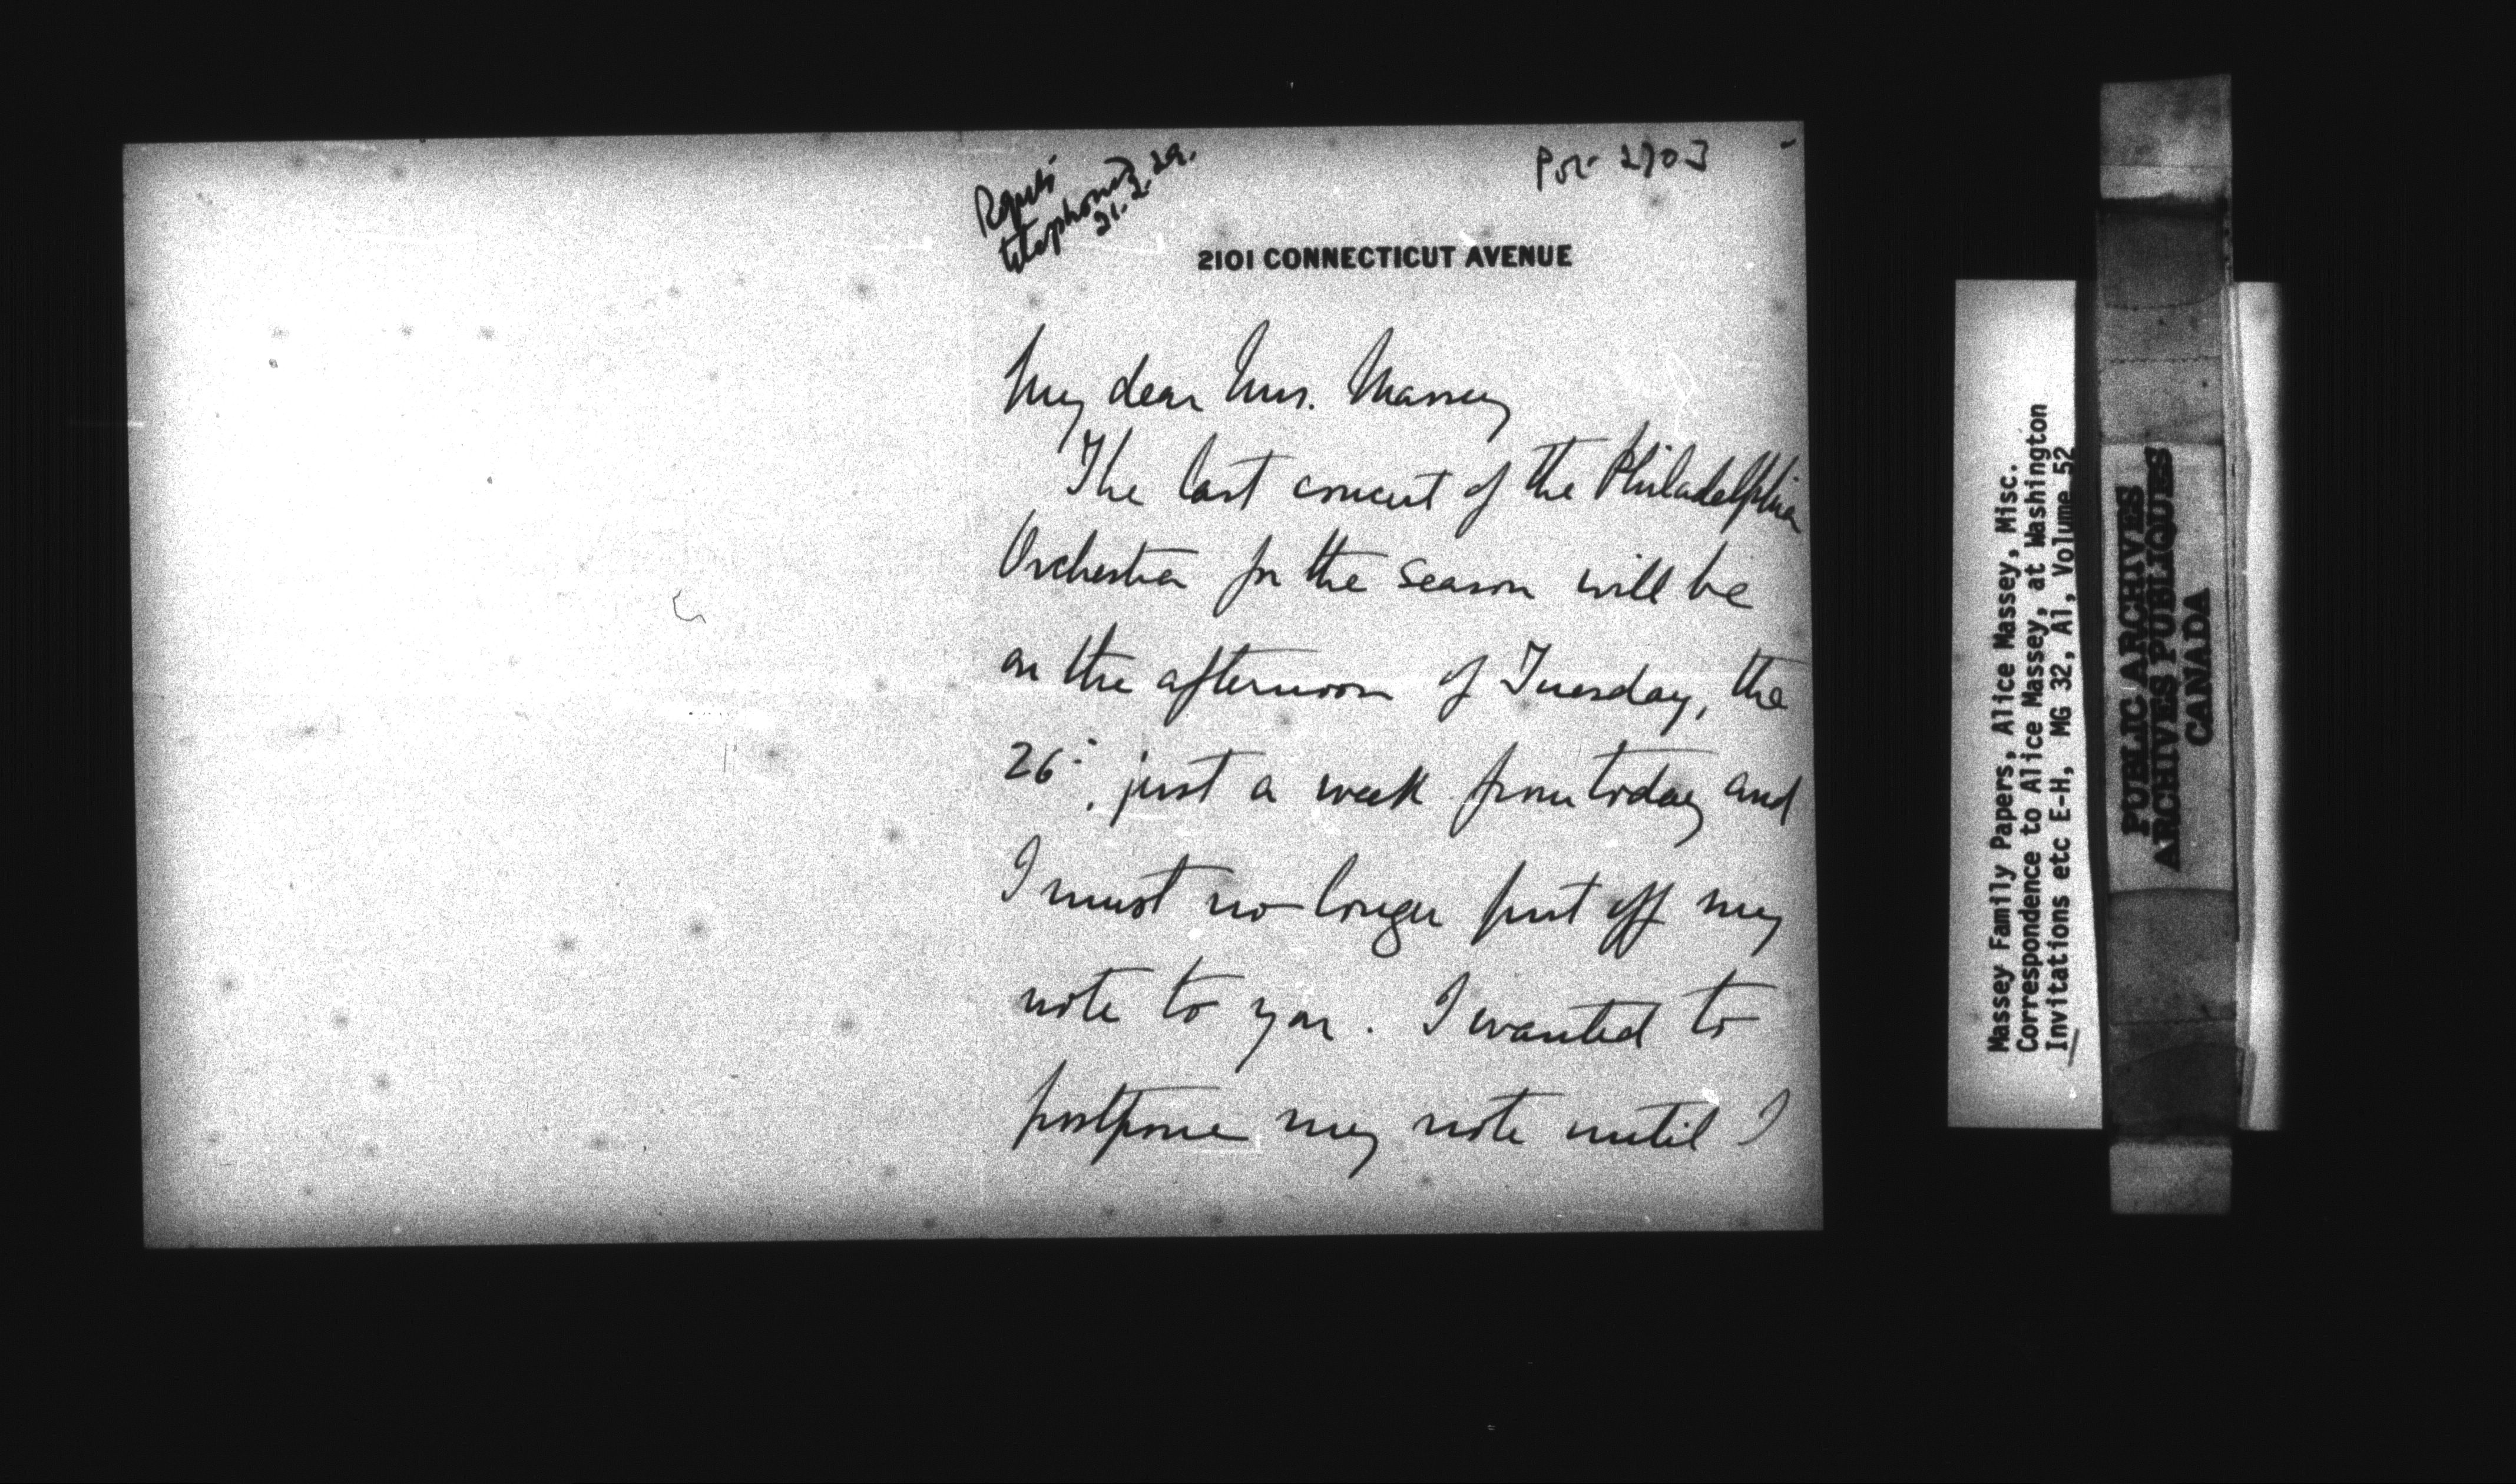 telephoned
21.2.29.
Pot- 2703
2101 CONNECTICUT AVENUE
My dear Mrs. Massey
The last concert of the Philadelphia
Orchestra for the season will be
on the afternoon of Tuesday, the
26:, just a week from today and
I must no longer put off my
note to you. I wanted to
postpone my note until I
Massey Family Papers, Alice Massey, Misc.
Correspondence to Alice Massey, at Washington
Invitations etc E-H, MG 32, A1, Volume 52
PUBLIC ARCHIVES
ARCHIVES PUBLIQUES
CANADA